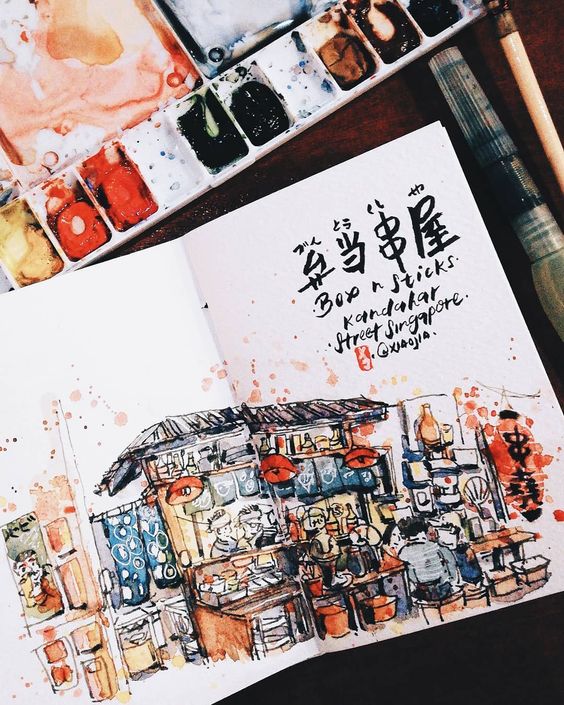 べん とう くし や
弁当串屋
Box n Sticks.
Kandahar
Street Singapore.
@XIAOJIA.
串